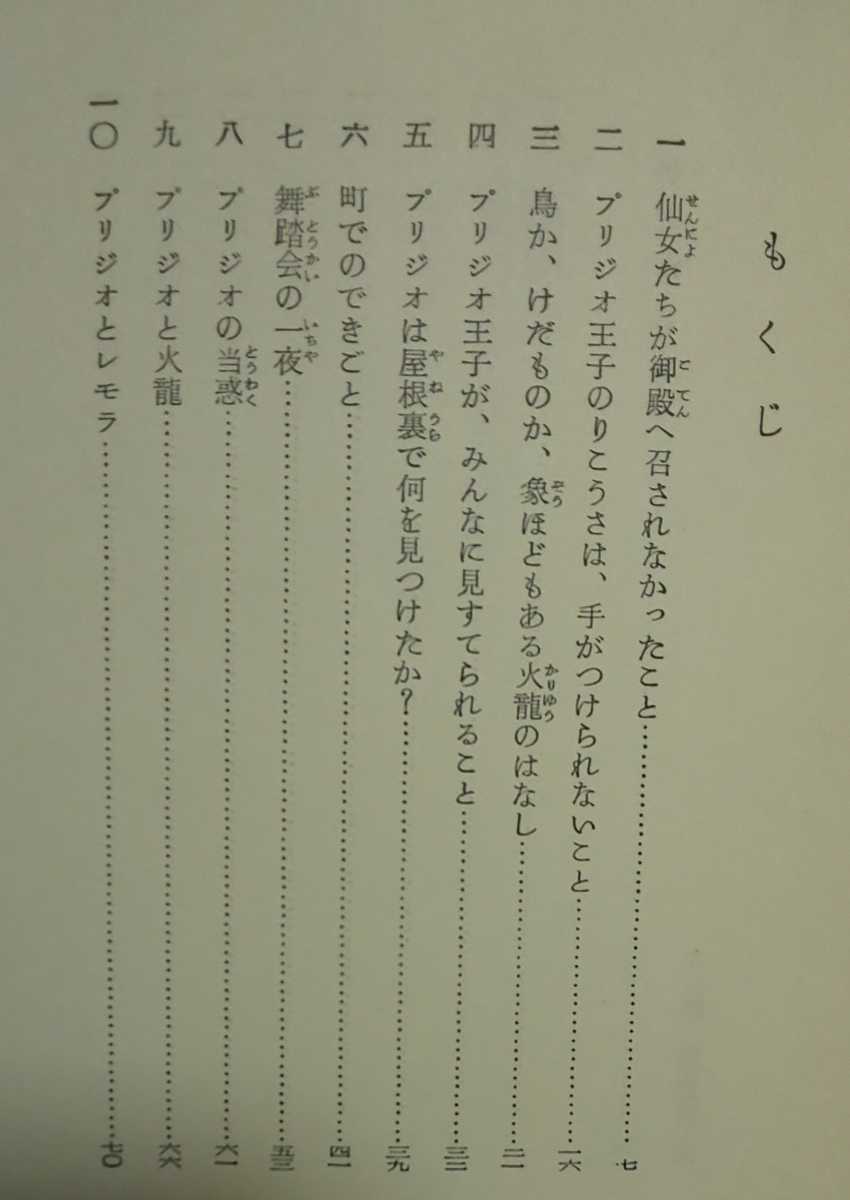 もくじ
一 仙女たちが御殿へ召されなかったこと……七
二 プリジオ王子のりこうさは、手がつけられないこと……一六
三 鳥か、けだものか、象ほどもある火龍のはなし……二一
四 プリジオ王子が、みんなに見すてられること……三二
五 プリジオは屋根裏で何を見つけたか？……三九
六 町でのできごと……四一
七 舞踏会の一夜……五三
八 プリジオの当惑……六一
九 プリジオと火龍……六六
一〇 プリジオとレモラ……七〇